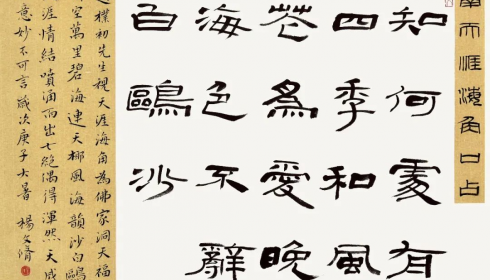 南天涯海角口占
知何處有
四季和風
花為愛晚
海色不辭
白鷗沙
趙樸初先生視天涯海角為佛家洞天福
空萬里碧海連天椰風海韻沙白鷗
涯情結噴涌而出七絕偶得渾然天成
意妙不可言歲次庚子大暑楊文清